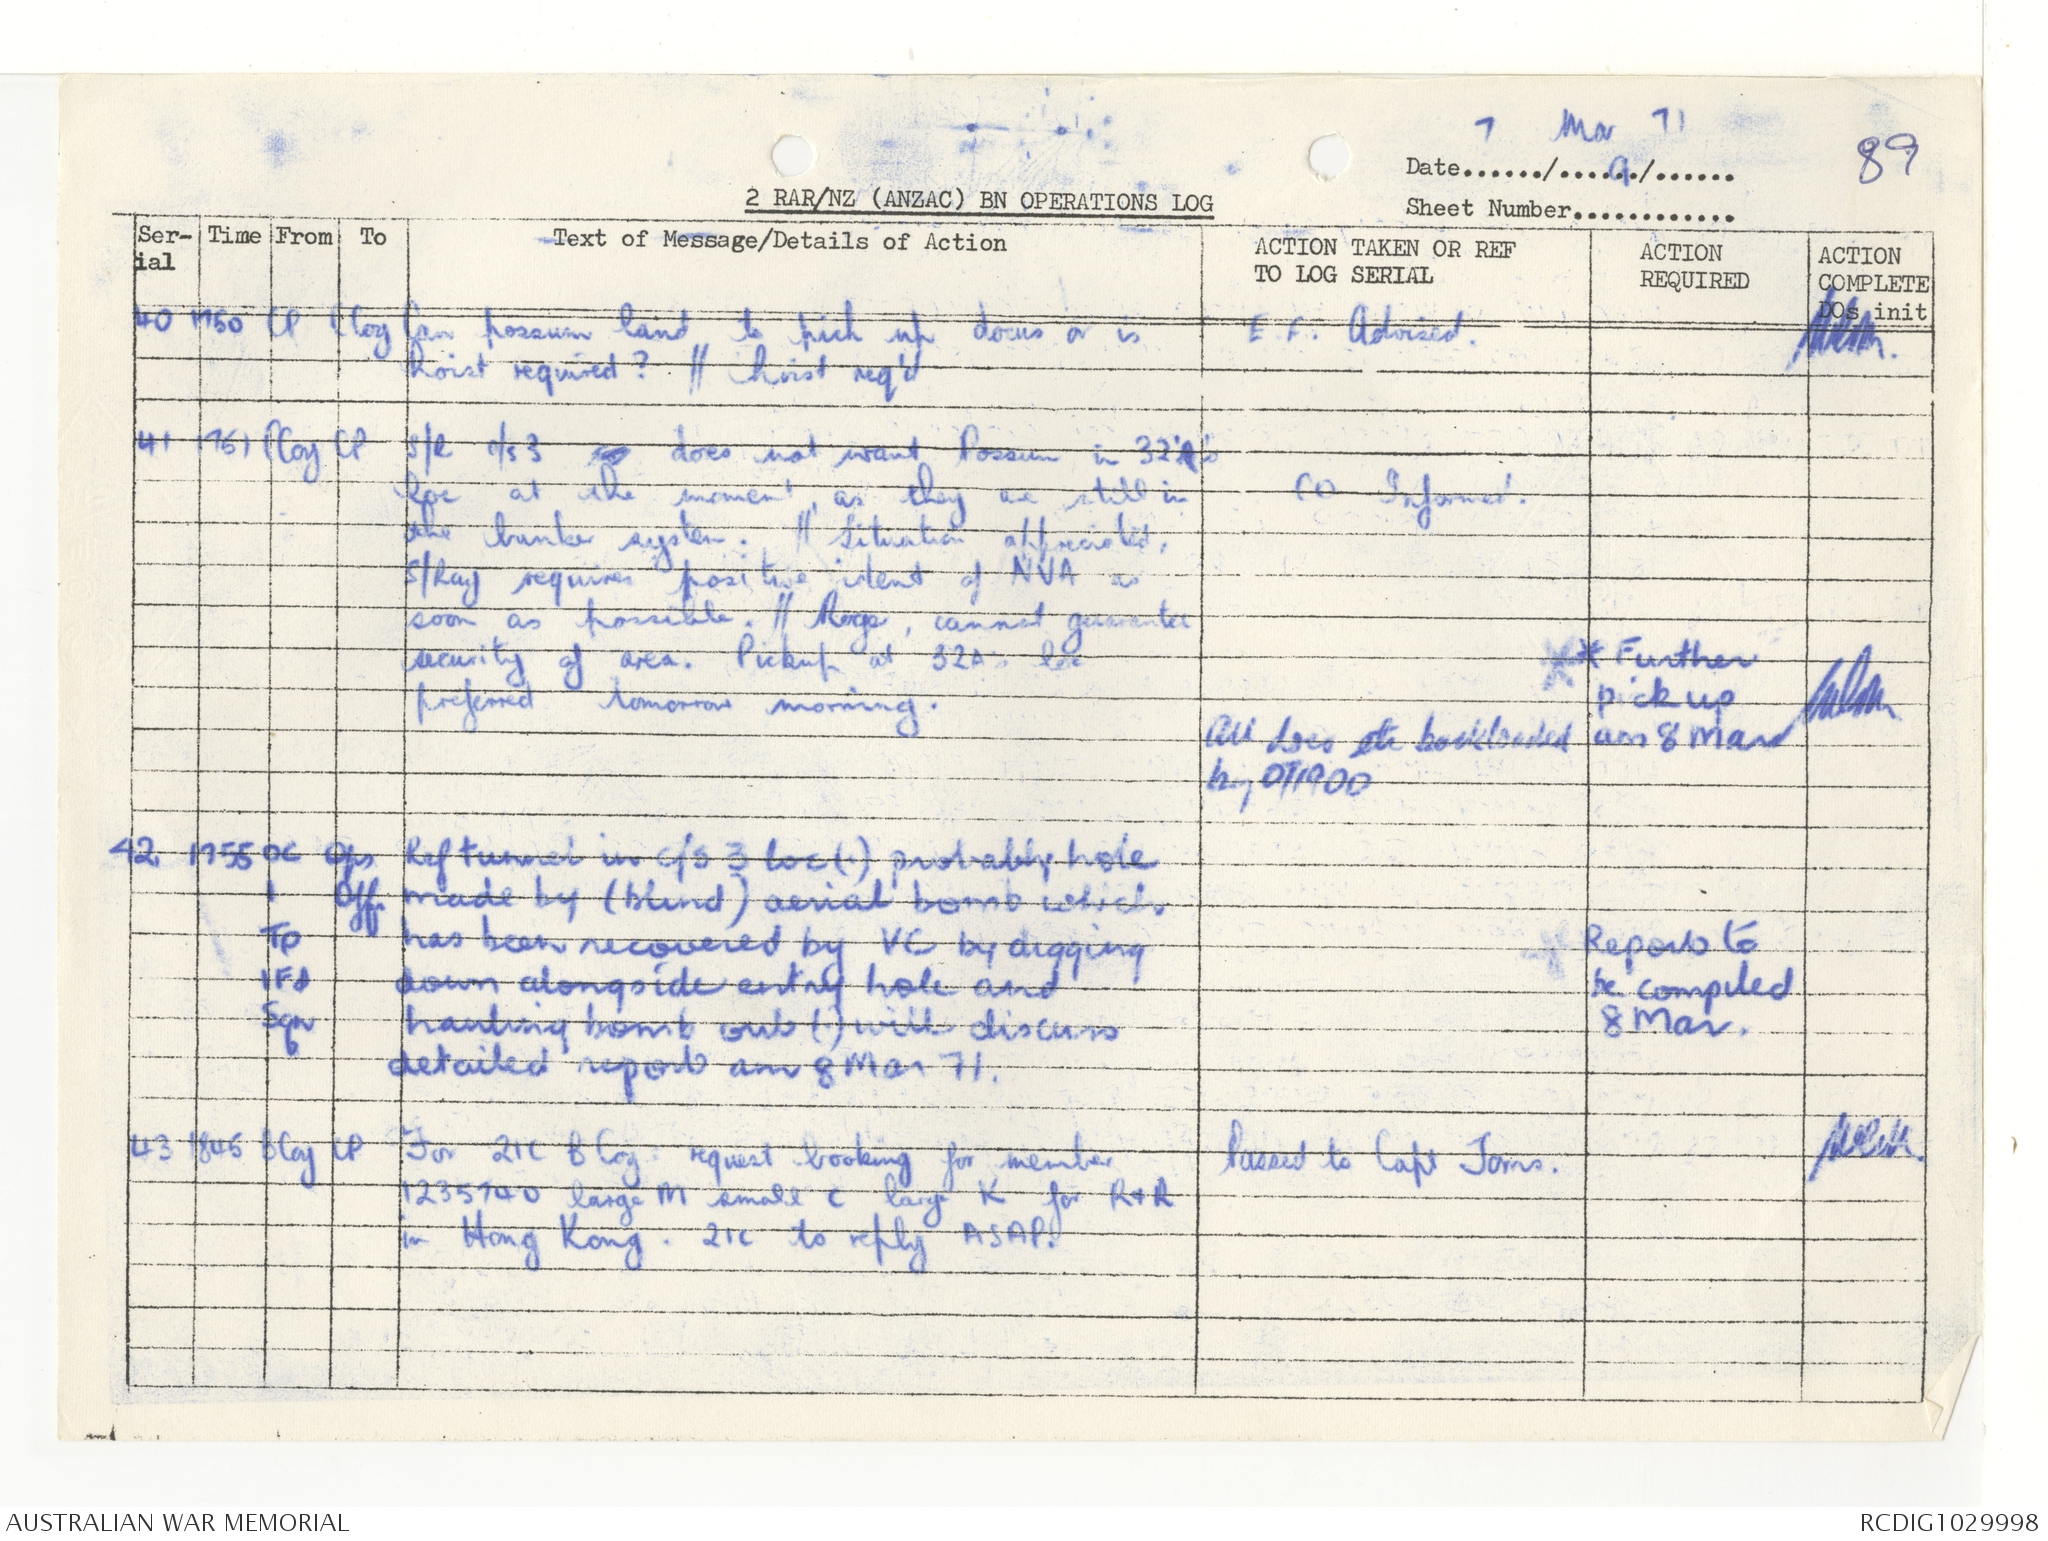 7 Mar 71
89
Date....../....../......
9
2 RAR/NZ (ANZAC) BN OPERATIONS LOG
Sheet Number............
Ser-
ial
Time
From
To
Text of Message/Details of Action
ACTION TAKEN OR REF
TO LOG SERIAL
ACTION
REQUIRED
ACTION
COMPLETE
DOs init
40 1750 CP Coy Can possum land to pick up docus or is
hoist required? // hoist req'd
Advised.
41 1751 Coy CP S/R c/s 3 does not want Possum in 32A's
loc at the moment, as they are still in
the bunker system. // Situation appreciated,
S/Ray requires positive ident of NVA as
soon as possible. // Roge, cannot guarantee
security of area. Pickup at 32A's loc
preferred tomorrow morning.
CO Informed.
All docs etc backloaded
by 071900
* Further
pick up
am 8 Mar
42 1755 OC 1 Tp 1 Fd Sqn Ops Offr
Ref tunnel in c/s 3 loc (.) probably hole
made by (blind) aerial bomb which
has been recovered by VC by digging
down alongside entry hole and
hauling bomb out (.) will discuss
detailed report am 8 Mar 71.
Report to
be compiled
8 Mar.
43 1845 B Coy CP For 2IC B Coy. request booking for member
1235740 large M small c large K for R+R
in Hong Kong. 2IC to reply ASAP.
Passed to Capt
AUSTRALIAN WAR MEMORIAL
RCDIG1029998